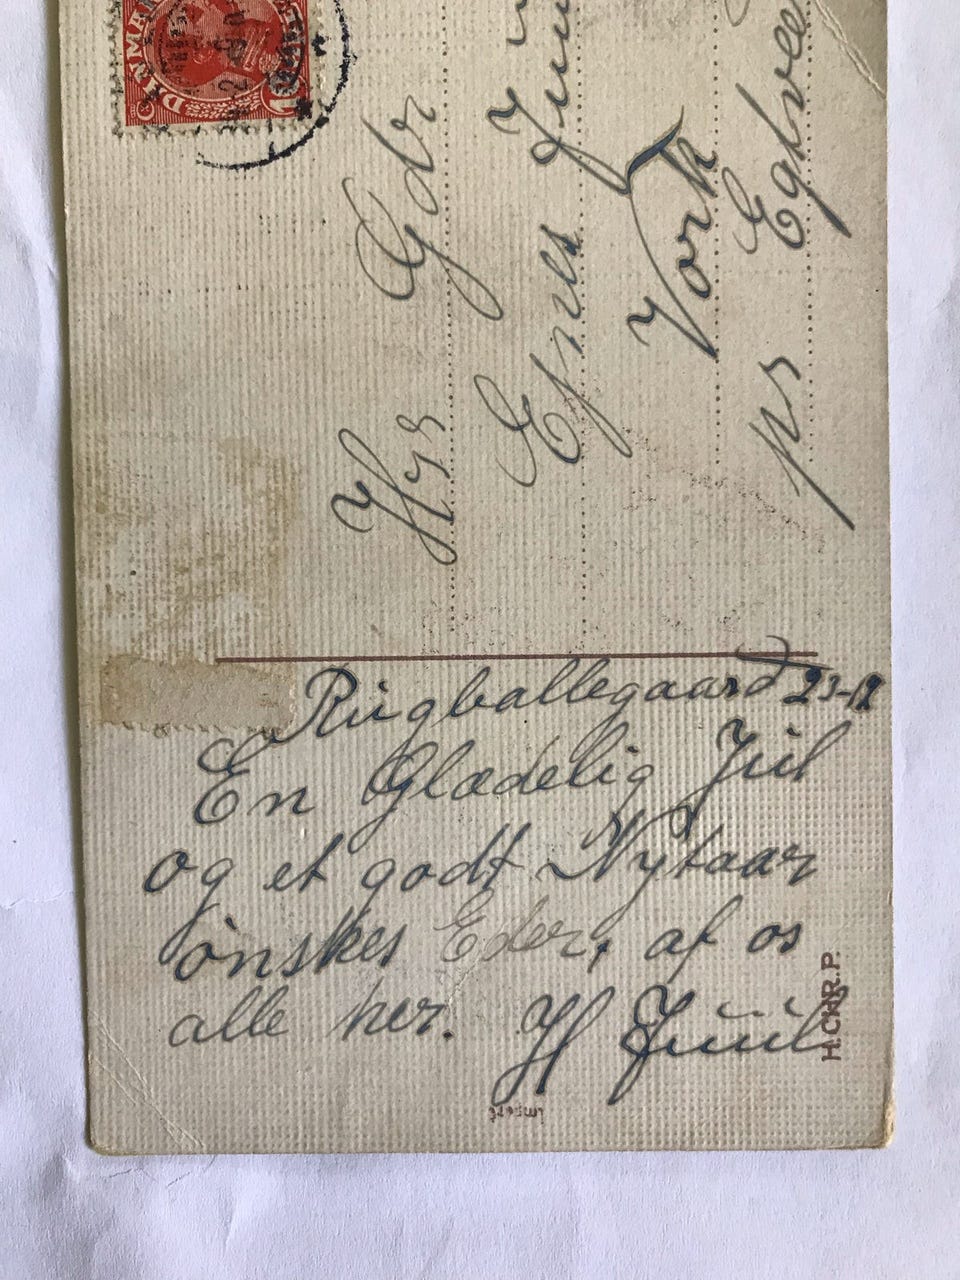 DANMA
Hrs Gdr
Esper Juu
Vork
pr Egtved
Ringballegaard 23-12
En Glædelig Jul
og et godt Nytaar
ønskes Eder, af os
alle her. H Juul
H.C.N.R.P.
Import